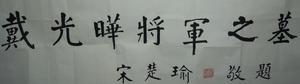 戴光曄將軍之墓
宋楚瑜敬題